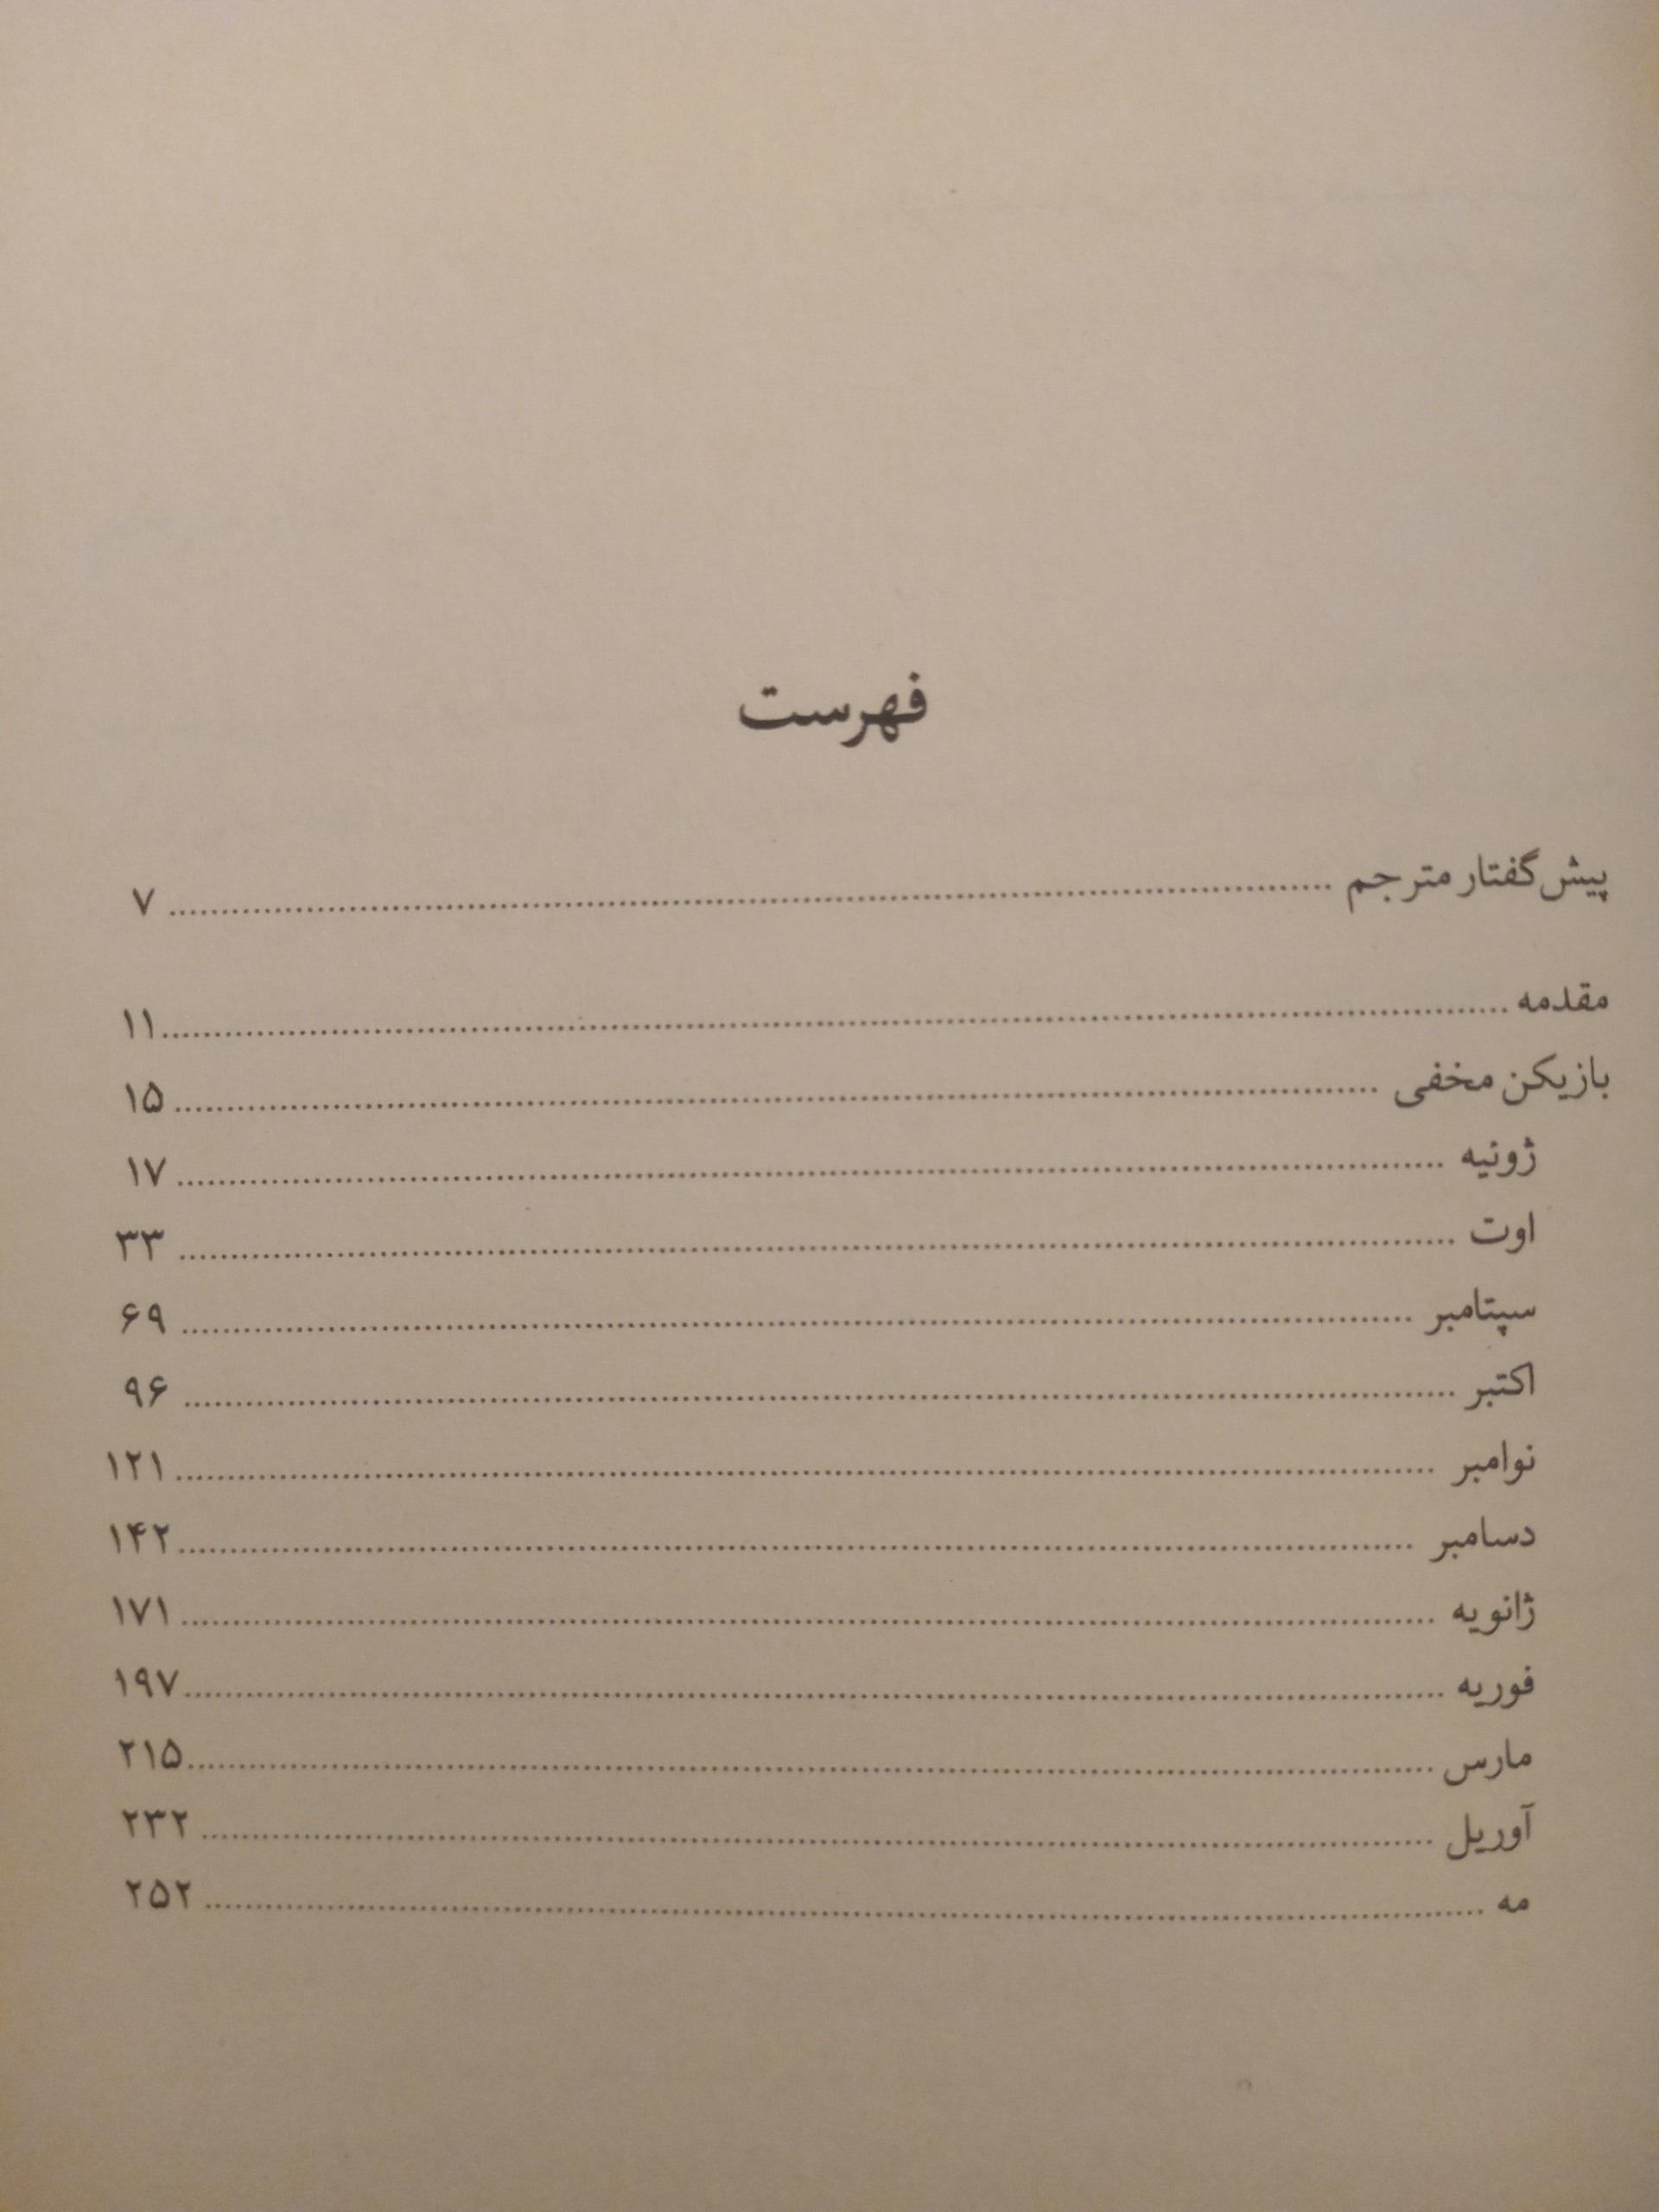 فهرست
پیش‌گفتار مترجم ........ ۷
مقدمه ........ ۱۱
بازیکن مخفی ........ ۱۵
ژوئیه ........ ۱۷
اوت ........ ۳۳
سپتامبر ........ ۶۹
اکتبر ........ ۹۶
نوامبر ........ ۱۲۱
دسامبر ........ ۱۴۲
ژانویه ........ ۱۷۱
فوریه ........ ۱۹۷
مارس ........ ۲۱۵
آوریل ........ ۲۳۲
مه ........ ۲۵۲